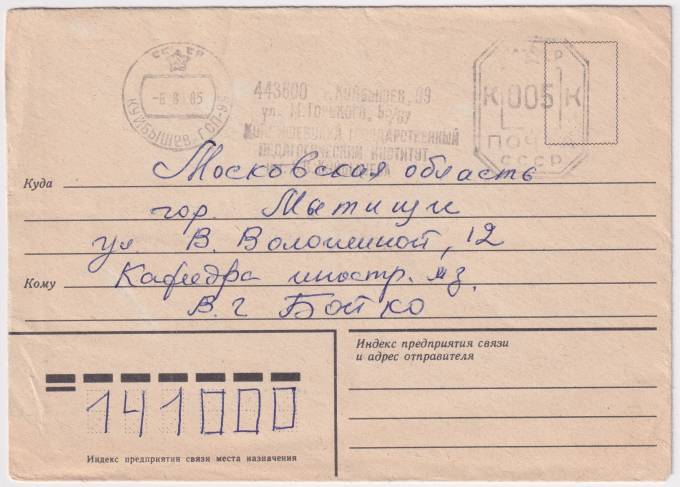 СССР
КУЙБЫШЕВ-ГСП-99
-6 8 85
443600 г. Куйбышев, 99
ул. М. Горького,
КУЙБЫШЕВСКИЙ ГОСУДАРСТВЕННЫЙ
ПЕДАГОГИЧЕСКИЙ ИНСТИТУТ
К 005 К
ПОЧТА
СССР
Московская область
Куда
гор. Мытищи
ул В. Волошиной, 12
Кому Кафедра иностр. яз.
В. г Бойко
Индекс предприятия связи
и адрес отправителя
141000
Индекс предприятия связи места назначения